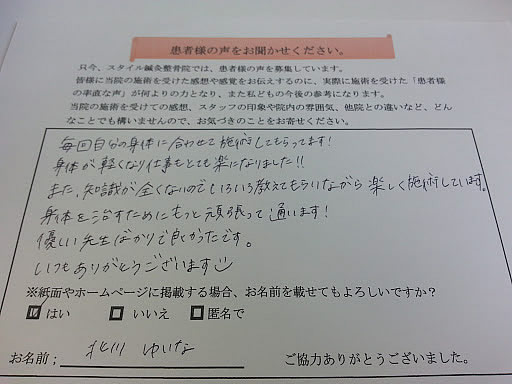 患者様の声をお聞かせください。
只今、スタイル鍼灸整骨院では、患者様の声を募集しています。
皆様に当院の施術を受けた感想や感覚をお伝えするのに、実際に施術を受けた「患者様
の率直な声」が何よりの力となり、また私どもの今後の参考になります。
当院の施術を受けての感想、スタッフの印象や院内の雰囲気、他院との違いなど、どん
なことでも構いませんので、お気づきのことをお寄せください。
毎回自分の身体に合わせて施術してもらってます!
身体が軽くなり仕事もとても楽になりました!!
また、知識が全くないのでいろいろ教えてもらいながら楽しく施術しています。
身体を治すためにもっと頑張って通います!
優しい先生ばかりで良かったです。
いつもありがとうございます
※紙面やホームページに掲載する場合、お名前を載せてもよろしいですか?
はい いいえ 匿名で
お名前: 北川 ゆいな ご協力ありがとうございました。